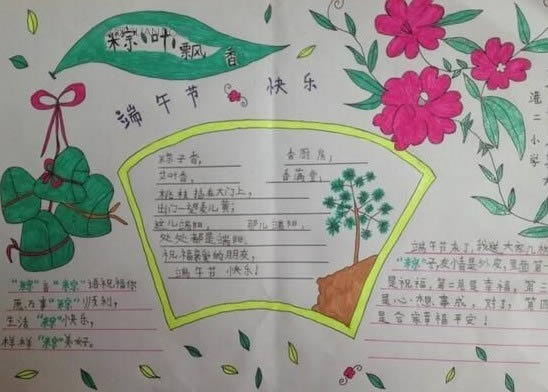 粽叶飘香
端午节快乐
粽子香,
香厨房,
艾叶香,
香满堂,
桃枝插在大门上,
出门一望麦儿黄;
这儿端阳,
那儿端阳,
处处都是端阳,
祝福亲爱的朋友,
端午节快乐!
"粽"言"粽"语祝福你
愿万事"粽"顺利,
生活"粽"快乐,
样样"粽"美好。
端午节来了,我送大家几
"粽"子,友情是外皮,里面第
是祝福,第二是是幸福,第三
是心想事成,对了,第四
是合家幸福平安!
小学